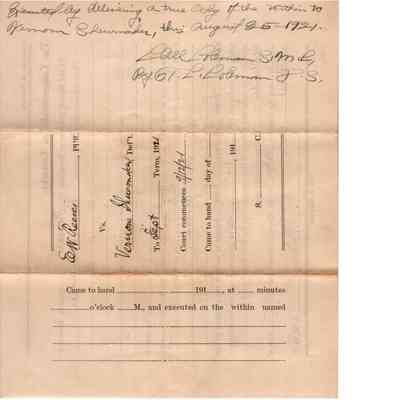 Executed by delivering a true copy of the within to
Vernon Shumaker, this August 25 - 1921.
Coleman S.M.C.
By Coleman D.S.
E W Reeves PL'FF.
Vs.
Vernon Shumaker Def't
To Sept Term, 1921
Court commences 9/12/21
Came to hand day of
191
S. C.
Came to hand 191 , at minutes
o'clock M., and executed on the within named